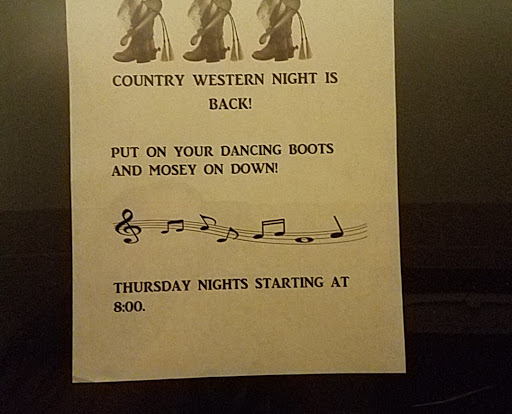 COUNTRY WESTERN NIGHT IS
BACK!
PUT ON YOUR DANCING BOOTS
AND MOSEY ON DOWN!
THURSDAY NIGHTS STARTING AT
8:00.